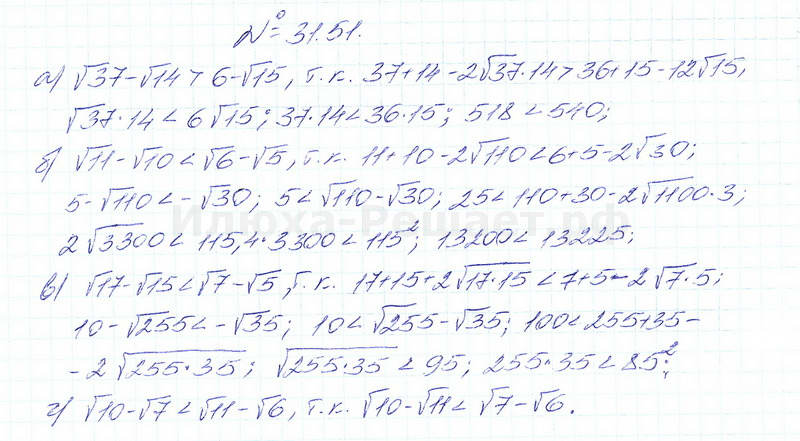 № 31.51.
а) √37-√14 > 6-√15, т.к. 37+14-2√37·14 > 36+15-12√15,
√37·14 < 6√15; 37·14 < 36·15; 518 < 540;
б) √11-√10 < √6-√5, т.к. 11+10-2√110 < 6+5-2√30;
5-√110 < -√30; 5 < √110-√30; 25 < 110+30-2√1100·3;
Илюха-Решает.рф
2√3300 < 115, 4·3300 < 115²; 13200 < 13225;
в) √17-√15 < √7-√5, т.к. 17+15+2√17·15 < 7+5-2√7·5;
10-√255 < -√35; 10 < √255-√35; 100 < 255+35-
-2√255·35; √255·35 < 95; 255·35 < 85²;
г) √10-√7 < √11-√6, т.к. √10-√11 < √7-√6.